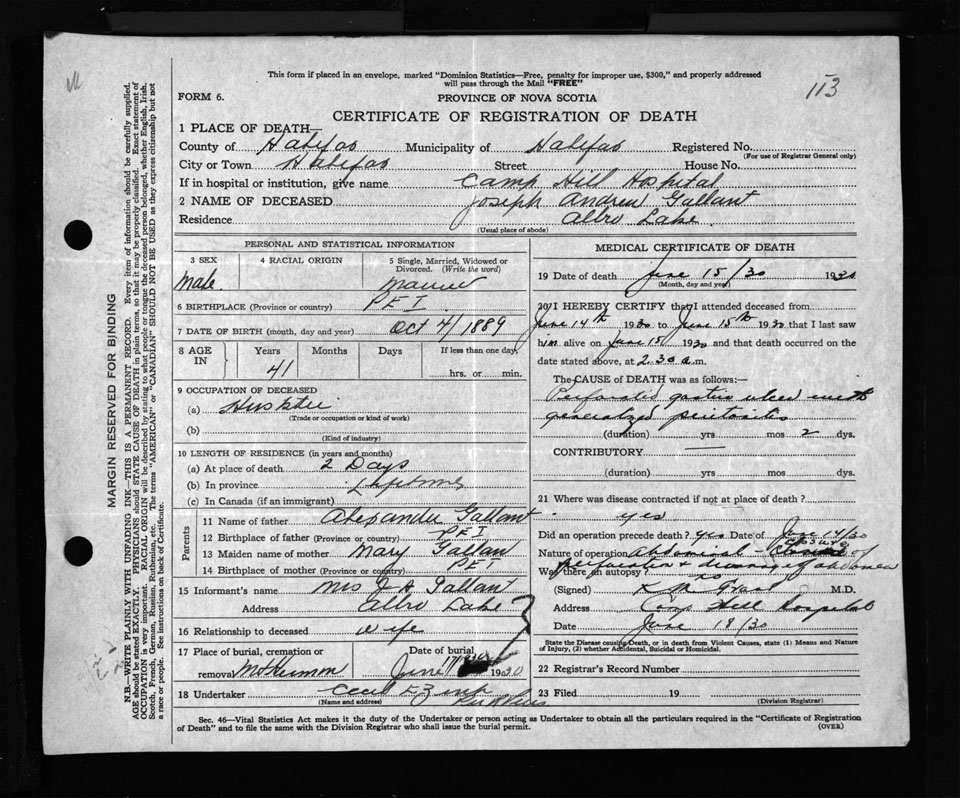 113
This form if placed in an envelope, marked "Dominion Statistics—Free, penalty for improper use, $300," and properly addressed
will pass through the Mail "FREE"
FORM 6.
PROVINCE OF NOVA SCOTIA
CERTIFICATE OF REGISTRATION OF DEATH
1 PLACE OF DEATH—
County of Halifax Municipality of Halifax Registered No.
(For use of Registrar General only)
City or Town Halifax Street House No.
If in hospital or institution, give name Camp Hill Hospital
2 NAME OF DECEASED Joseph Andrew Gallant
Residence Albro Lake
(Usual place of abode)
PERSONAL AND STATISTICAL INFORMATION
3 SEX 4 RACIAL ORIGIN 5 Single, Married, Widowed or
Divorced. (Write the word)
Male Married
6 BIRTHPLACE (Province or country) P E I
7 DATE OF BIRTH (month, day and year) Oct 4/1889
8 AGE IN Years Months Days If less than one day,
41 hrs. or min.
9 OCCUPATION OF DECEASED
(a)
(Trade or occupation or kind of work)
(b)
(Kind of industry)
10 LENGTH OF RESIDENCE (in years and months)
(a) At place of death 2 Days
(b) In province Lifetime
(c) In Canada (if an immigrant)
Parents
11 Name of father Alexander Gallant
12 Birthplace of father (Province or country) P E I
13 Maiden name of mother Mary Gallant
14 Birthplace of mother (Province or country) P E I
15 Informant's name Mrs J A Gallant
Address Albro Lake
16 Relationship to deceased wife
17 Place of burial, cremation or Date of burial
removal Mt Hermon June 17/1930 1930
18 Undertaker Cecil E Zink
(Name and address)
MEDICAL CERTIFICATE OF DEATH
19 Date of death June 15/30 1930
(Month, day and year)
20 I HEREBY CERTIFY that I attended deceased from
June 14th 1930 to June 15th 1930 that I last saw
him alive on June 15 1930 and that death occurred on the
date stated above, at 2.30 a.m.
The CAUSE OF DEATH was as follows:—
Perforated gastric ulcer with
generalized peritonitis
(duration) yrs mos 2 dys.
CONTRIBUTORY —
(duration) yrs mos dys.
21 Where was disease contracted if not at place of death?
yes
Did an operation precede death? yes Date of June 14/30
Nature of operation Abdominal - Closure of
perforation & drainage of abdomen
Was there an autopsy? no
(Signed) K M Grant M.D.
Address Camp Hill Hospital
Date June 18/30
State the Disease causing Death, or in death from Violent Causes, state (1) Means and Nature
of Injury, (2) whether Accidental, Suicidal or Homicidal.
22 Registrar's Record Number
23 Filed 19
(Division Registrar)
Sec. 46—Vital Statistics Act makes it the duty of the Undertaker or person acting as Undertaker to obtain all the particulars required in the "Certificate of Registration
of Death" and to file the same with the Division Registrar who shall issue the burial permit.
(OVER)
MARGIN RESERVED FOR BINDING
N.B.—WRITE PLAINLY WITH UNFADING INK—THIS IS A PERMANENT RECORD. Every item of information should be carefully supplied.
AGE should be stated EXACTLY. PHYSICIANS should STATE CAUSE OF DEATH in plain terms, so that it may be properly classified. Exact statement of
OCCUPATION is very important. RACIAL ORIGIN will be described by stating to what people or tongue the deceased person belonged, whether English, Irish,
Scotch, French, German, Russian, Ruthenian, etc. The terms "AMERICAN" or "CANADIAN" SHOULD NOT BE USED as they express citizenship but not
a race or people. See instructions on back of Certificate.